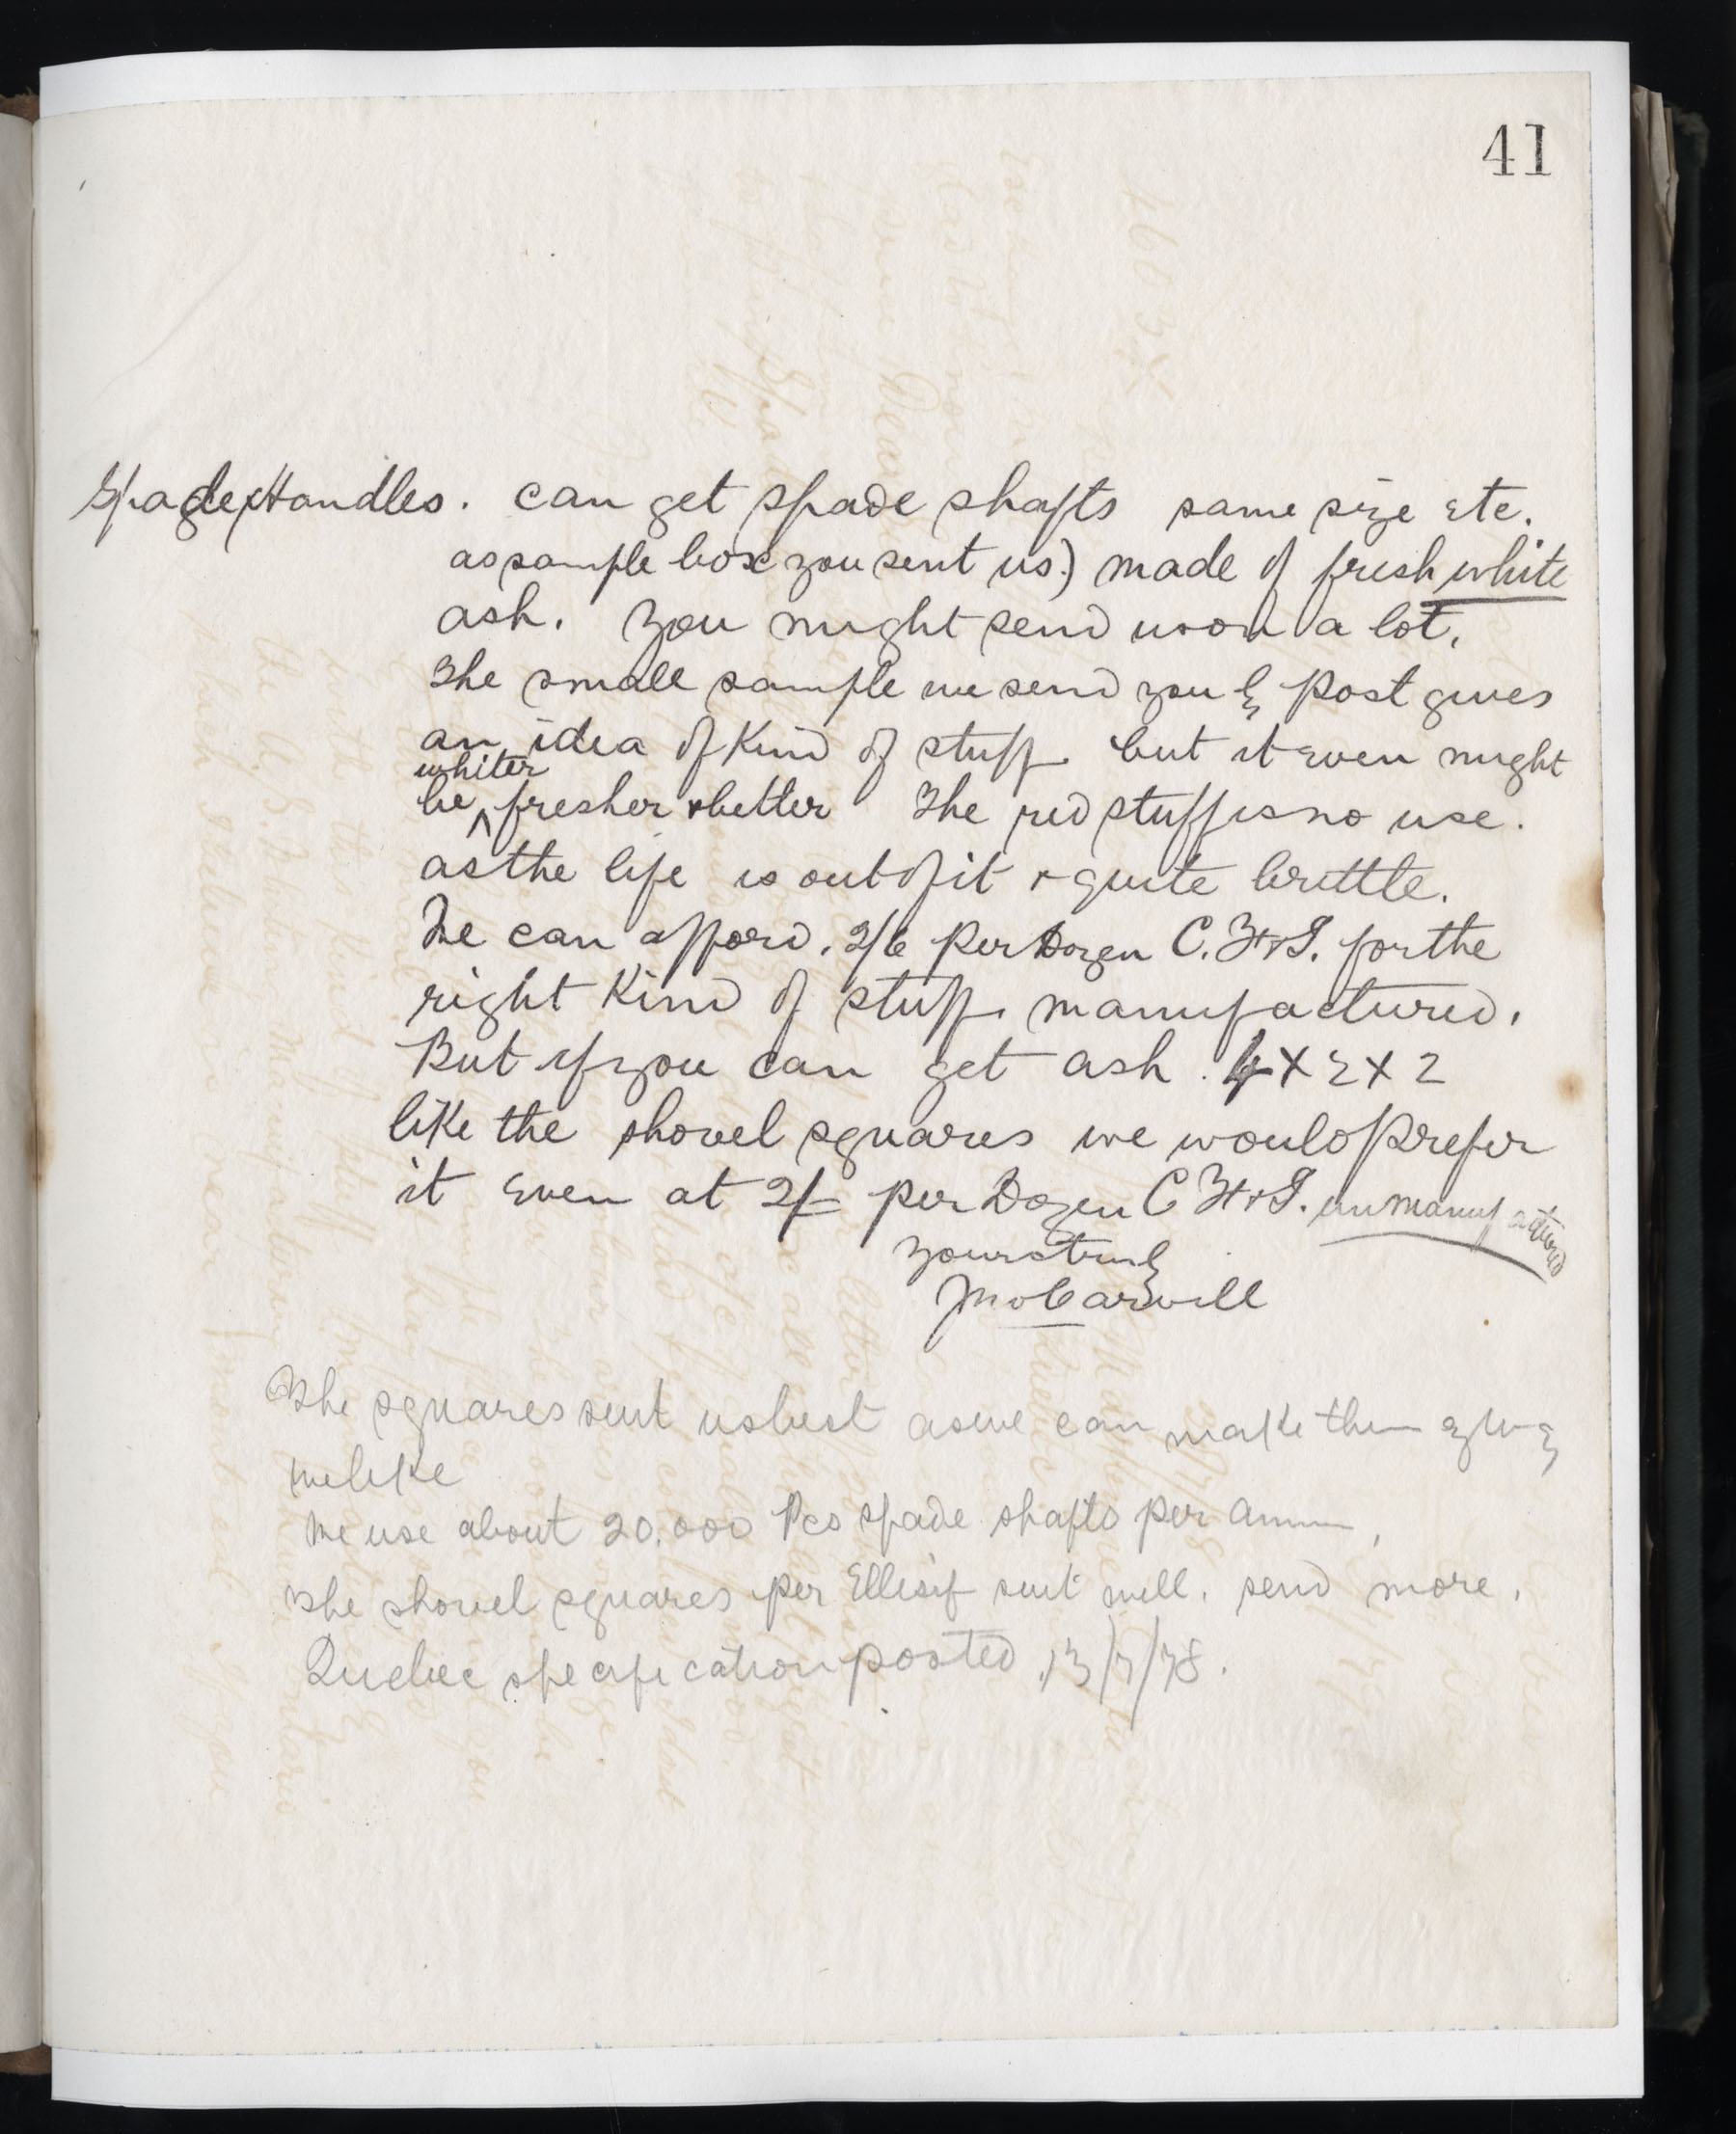 41
Spade Handles. can get spade shafts same size etc.
as sample box you sent us) made of fresh white
ash. you might send us on a lot.
The small sample we send you by post gives
an idea of Kind of stuff but it even might
whiter
be ^ fresher & better The red stuff is no use.
as the life is out of it & quite brittle.
We can afford. 2/6 per Dozen C. F & I. for the
right Kind of stuff. manufactured.
But if you can get ash. 4 X 2 X 2
like the shovel squares we would prefer
it Even at 2/- per Dozen C F & I. unmanufactured
yours truly
Jno Carvill
The squares suit us best as we can make them any way
we like
We use about 20.000 Pcs spade shafts per Annum,
The shovel squares per Ellisif suit well. send more.
Quebec specification posted 13/7/78.